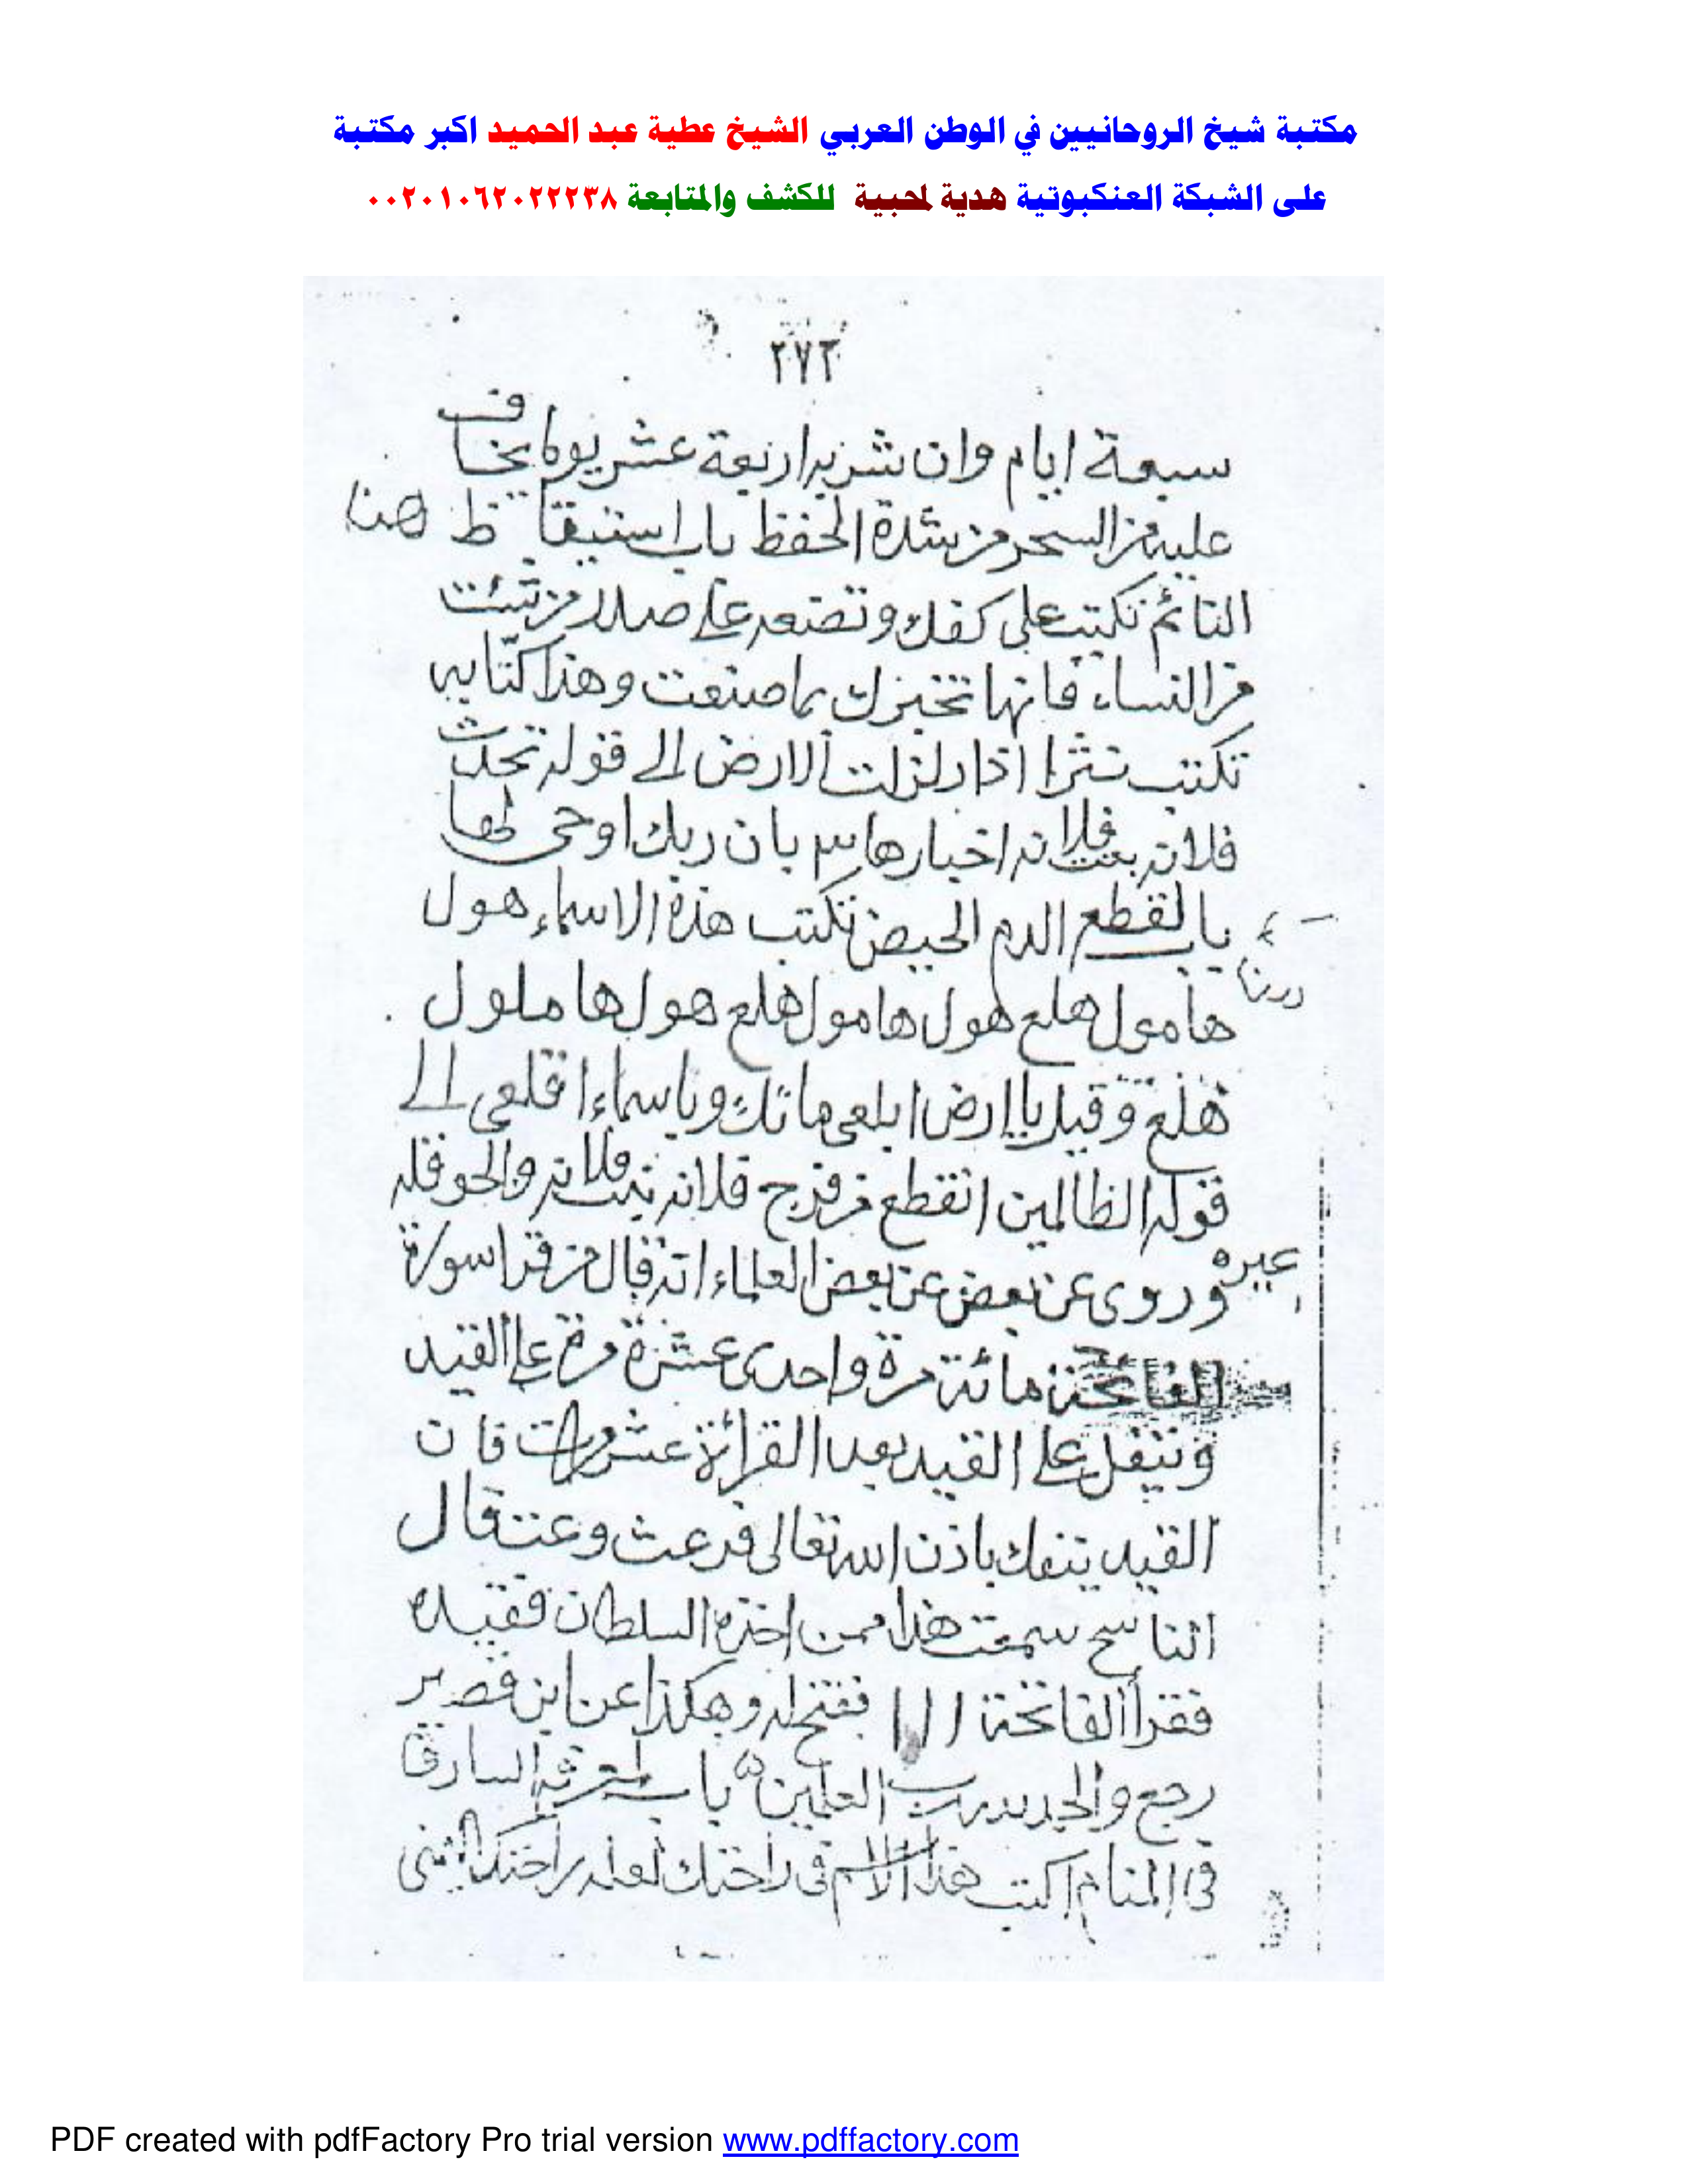 مكتبة شيخ الروحانيين في الوطن العربي الشيخ عطية عبد الحميد اكبر مكتبة
على الشبكة العنكبوتية هدية لمحبية للكشف والمتابعة ٠٠٢٠١٠٦٢٠٢٢٢٣٨
٢٧٢
سبعة ايام وان شربه اربعة عشر يوما يخاف
عليه من السحر من شدة الحفظ باب استيقاظ هنا
النائم تكتب على كفك وتضعه على صدر من شئت
من النساء فانها تخبرك بما صنعت وهذا كتابه
تكتب اذا زلزلت الارض الى قوله تحدث
فلانه بنت فلانه اخبارها بان ربك اوحى لها
باب لقطع الدم الحيض تكتب هذه الاسماء هول
هامول هلع هول هامول هلع هول هاملول
هلع وقيل يا ارض ابلعى مائك وياسماء اقلعى الى
قوله الظالمين انقطع من فرج فلانه بنت فلانه والحوقله
غيره
وروى عن بعض عن بعض العلماء انه قال من قرا سورة
الفاتحة مائة مرة واحدى عشرة مرة على القيد
وتتفل على القيد بعد القرائة عشر مرات فان
القيد ينفك باذن الله تعالى وعنه قال
الناسخ سمعت هذا ممن اخذه السلطان فقيده
فقرأ الفاتحة ١١١ ففتح له وهكذا عن ابن قصير
رجع والحمد لله رب العلمين باب السارق
فى المنام اكتب هذا الاسم فى راحتك
PDF created with pdfFactory Pro trial version www.pdffactory.com